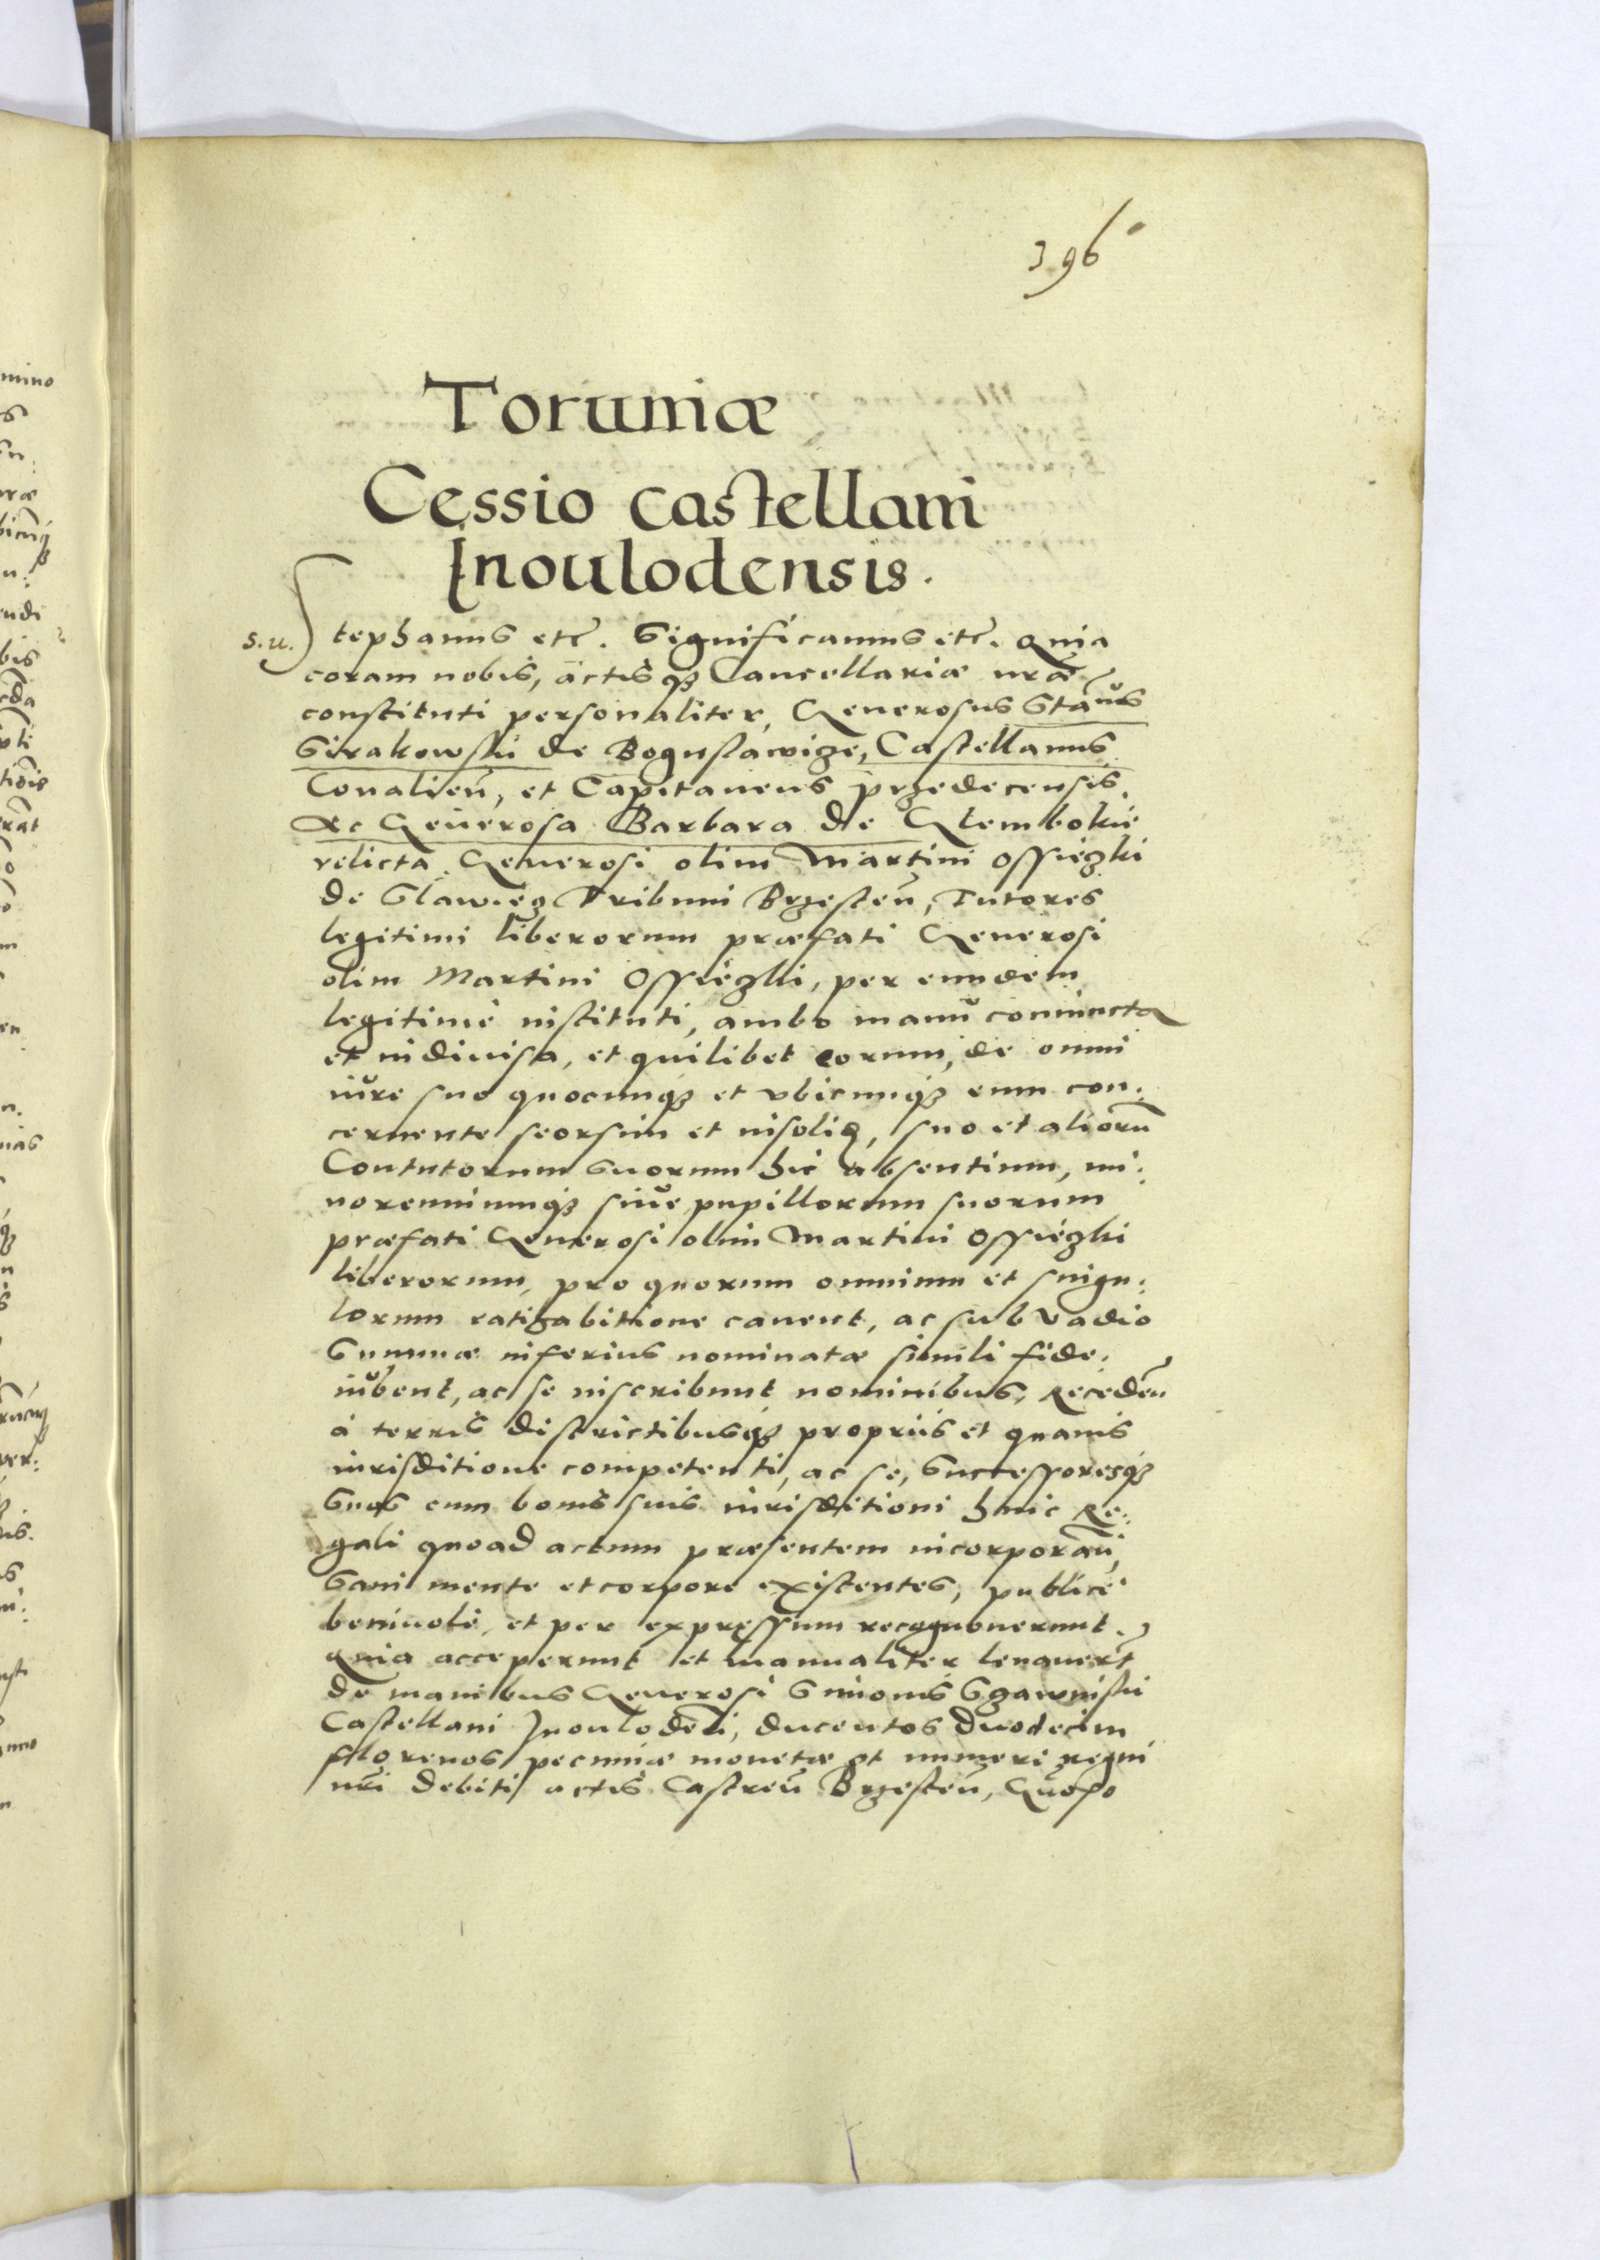 396
Toruniæ
Cessio castellani
Inoulodensis.
S.u. Stephanus etc̃. Significamus etc̃. Quia
coram nobis, actisq3 Cancellariæ nr̃æ
constituti personaliter, Generosus Stãus
Sirakowski de Boguslawicze, Castellanus
Conalieñ, et Capitaneus przedecensis,
Ac Generosa Barbara de Glembokie
relicta Generosi olim Martini Ossięzki
de Slawięcz Tribuni Brzesteñ, Tutores
legitimi liberorum præfati Generosi
olim Martini Ossięzki, per eundem
legitimè instituti, ambo manũ coniuncta
et indiuisa, et quilibet eorum, de omni
iũre suo quocunq3 et vbicunq3 eum con:
cernente seorsim et insolid, suo et aliorũ
Contutorum suorum hic absentium, mi:
norenniumq3 siũe pupillorum suorum
præfati Generosi olim Martini Ossięzki
liberorum, pro quorum omnium et singu:
lorum ratihabitione cauent, ac sub vadio
Summæ inferius nominatæ simili fide:
iũbent, ac se inscribunt nominibus, Recedeñ
à terris districtibusq3 propriis et quauis
iurisditione competenti, ac se, Successoresq3
Suos cum bonis suis iurisditioni huic Re:
gali quoad actum præsentem incorporañ,
Sani mente et corpore existentes, publicè
beniuolè, et per expressum recognouerunt.
Quia acceperunt et manualiter leuauerũt
de manibus Generosi Simonis Szawinski
Castellani Inoulodeñ, ducentos duodecim
florenos pecuniæ monetæ et numeri regni
nr̃i debiti actis Castreñ Brzesteñ,